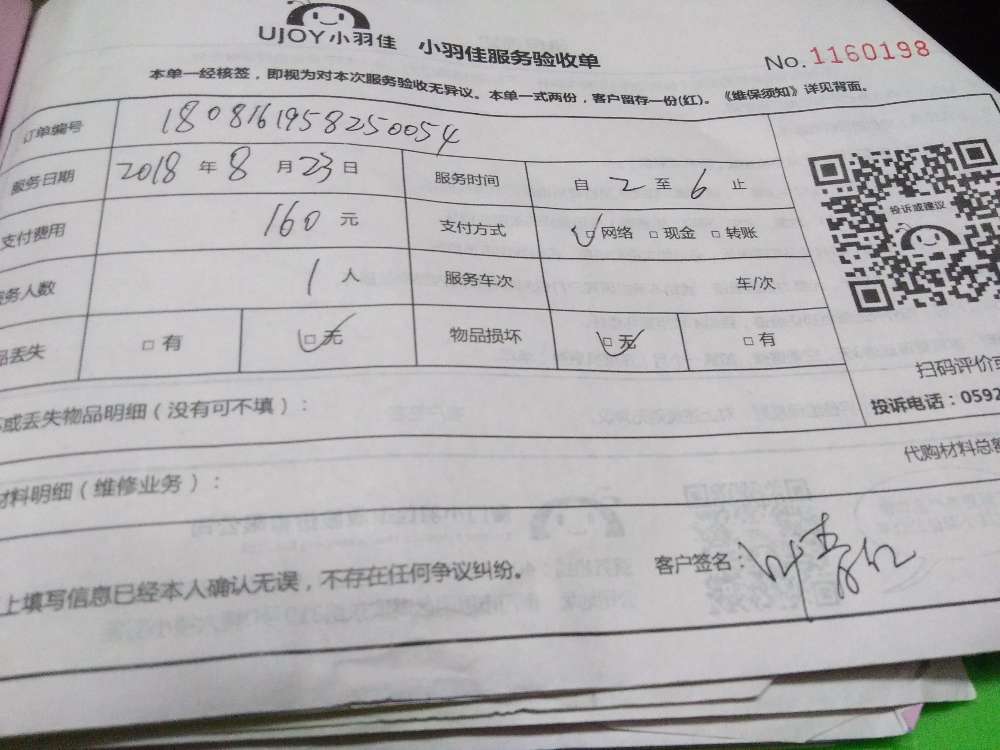 UJOY小羽佳 小羽佳服务验收单 No.1160198
本单一经核签，即视为对本次服务验收无异议。本单一式两份，客户留存一份(红)。《维保须知》详见背面。
订单编号 1808161958250054
服务日期 2018 年 8 月 23 日 服务时间 自 2 至 6 止
支付费用 160 元 支付方式 □ 网络 □ 现金 □ 转账
务人数 1 人 服务车次 车/次
品丢失 □ 有 □ 无 物品损坏 □ 无 □ 有
投诉或建议
扫码评价或
投诉电话：0592
或丢失物品明细（没有可不填）：
代购材料总额
材料明细（维修业务）：
上填写信息已经本人确认无误，不存在任何争议纠纷。 客户签名：